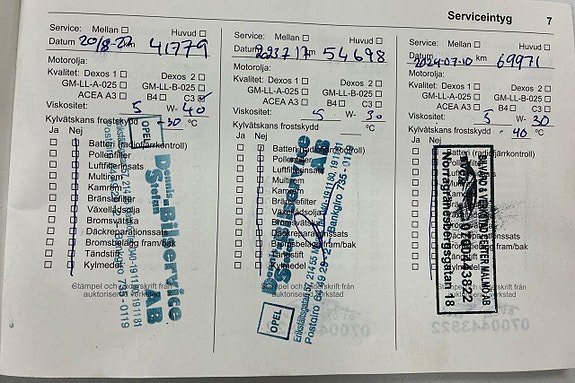 Serviceintyg 7
Service: Mellan Huvud
Datum 20/8-22 km 41779
Motorolja:
Kvalitet: Dexos 1 Dexos 2
GM-LL-A-025 GM-LL-B-025
ACEA A3 B4 C3
Viskositet: 5 W- 40
Kylvätskans frostskydd -30 °C
Ja Nej
Batteri (radiofjärrkontroll)
Pollenfilter
Luftfilterinsats
Multirem
Kamrem
Bränslefilter
Växellådsolja
Bromsvätska
Däckreparationssats
Bromsbelägg fram/bak
Tändstift
Kylmedel
Stämpel och underskrift från
auktoriserad verkstad
OPEL
AB
Service: Mellan Huvud
Datum 2023 7 17 km 54698
Motorolja:
Kvalitet: Dexos 1 Dexos 2
GM-LL-A-025 GM-LL-B-025
ACEA A3 B4 C3
Viskositet: 5 W- 30
Kylvätskans frostskydd °C
Ja Nej
Batteri (radiofjärrkontroll)
Pollenfilter
Luftfilterinsats
Multirem
Kamrem
Bränslefilter
Växellådsolja
Bromsvätska
Däckreparationssats
Bromsbelägg fram/bak
Tändstift
Kylmedel
OPEL
AB
Service: Mellan Huvud
Datum 2024-07-10 km 69971
Motorolja:
Kvalitet: Dexos 1 Dexos 2
GM-LL-A-025 GM-LL-B-025
ACEA A3 B4 C3
Viskositet: 5 W- 30
Kylvätskans frostskydd -40 °C
Ja Nej
Batteri (radiofjärrkontroll)
Pollenfilter
Luftfilterinsats
Multirem
Kamrem
Bränslefilter
Växellådsolja
Bromsvätska
Däckreparationssats
Bromsbelägg fram/bak
Tändstift
Kylmedel
Stämpel och underskrift från
auktoriserad verkstad
BILVÅRD & VERKSTAD CENTER MALMÖ AB
0700443822
18